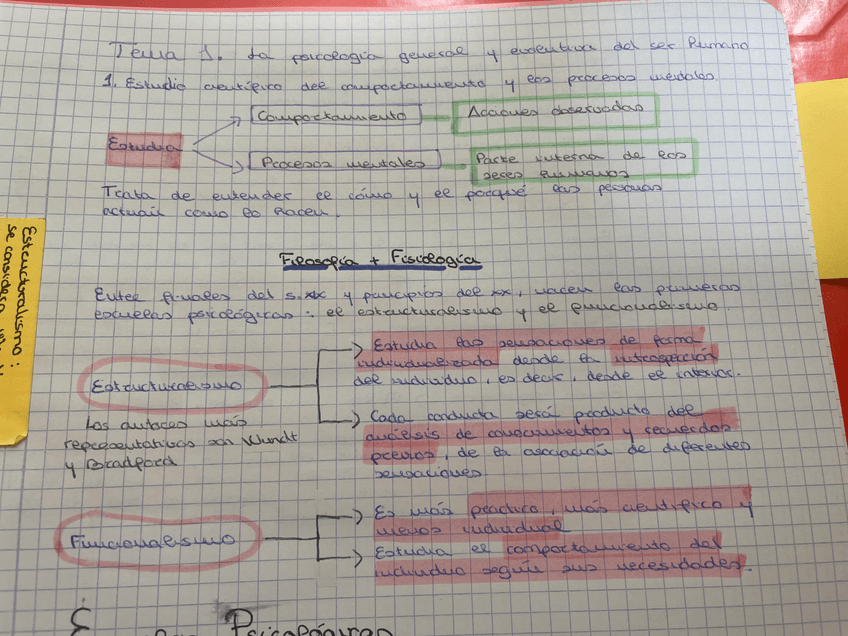 Tema 1. La psicología general y evolutiva del ser humano
1. Estudio científico del comportamiento y los procesos mentales.
Estudia
Comportamiento
Acciones observadas
Procesos mentales
Parte interna de los
seres humanos
Trata de entender el cómo y el porqué las personas
actúan como lo hacen.
Filosofía + Fisiología
Entre finales del s.XIX y principios del XX, nacen las primeras
escuelas psicológicas: el estructuralismo y el funcionalismo.
Estructuralismo
Los autores más
representativos son Wundt
y Bradford
Estudia las sensaciones de forma
individualizada desde la introspección
del individuo, es decir, desde el interior.
Cada conducta será producto del
análisis de conocimientos y recuerdos
previos, de la asociación de diferentes
sensaciones.
Funcionalismo
Es más práctico, más científico y
menos individual
Estudia el comportamiento del
individuo según sus necesidades.
Psicológicas
Estructuralismo:
se considera